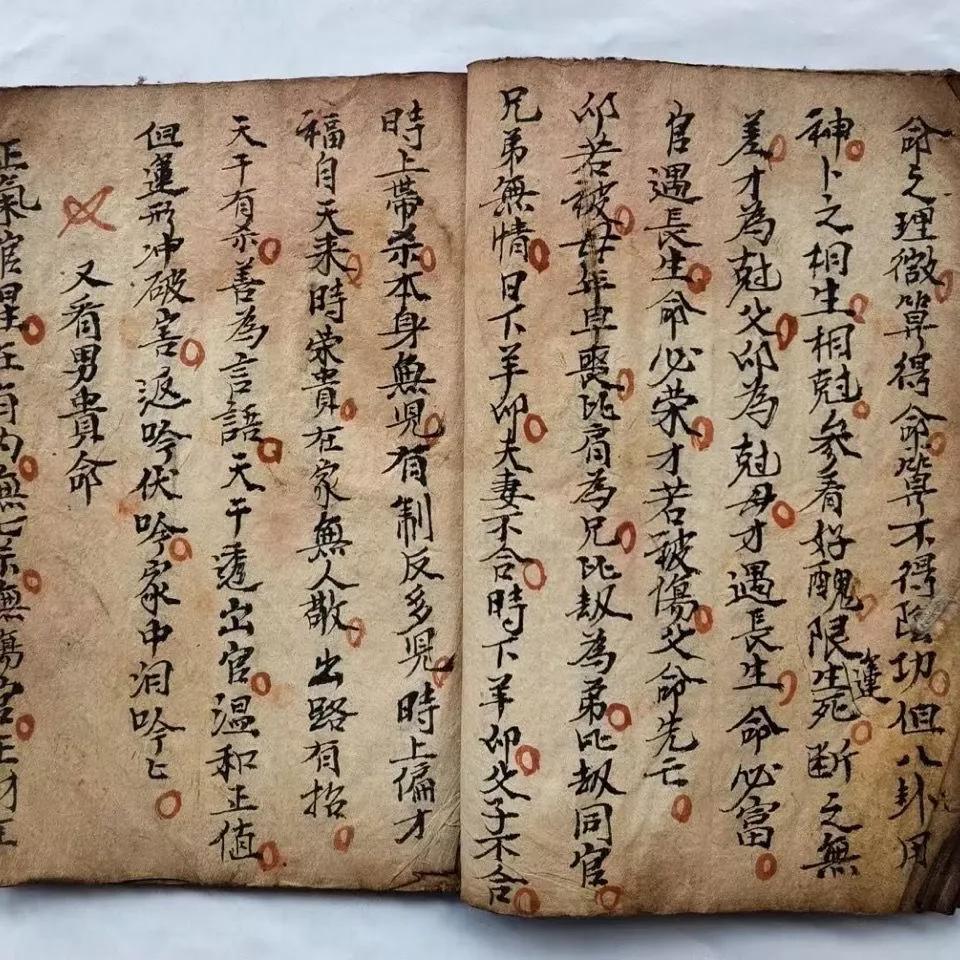 命之理微算得命算不得陰功但八卦用
神卜之相生相尅参看好醜限生死断之無
運
差才為尅父卯為尅母才遇長生命必富
官遇長生命必荣才若被傷父命先亡
卯若被母年早喪比肩為兄比刼為弟比刼同官
兄弟無情日下羊卯夫妻不合時下羊卯父子不合
時上帶杀本身無児有制反多児時上偏才
福自天来時荣貴在家無人敬出路有招
天干有杀善為言語天干透出官温和正值
但運形冲破害返吟伏吟家中泪吟吟
又看男貴命
正氣官星在月內無七杀無傷官正才在